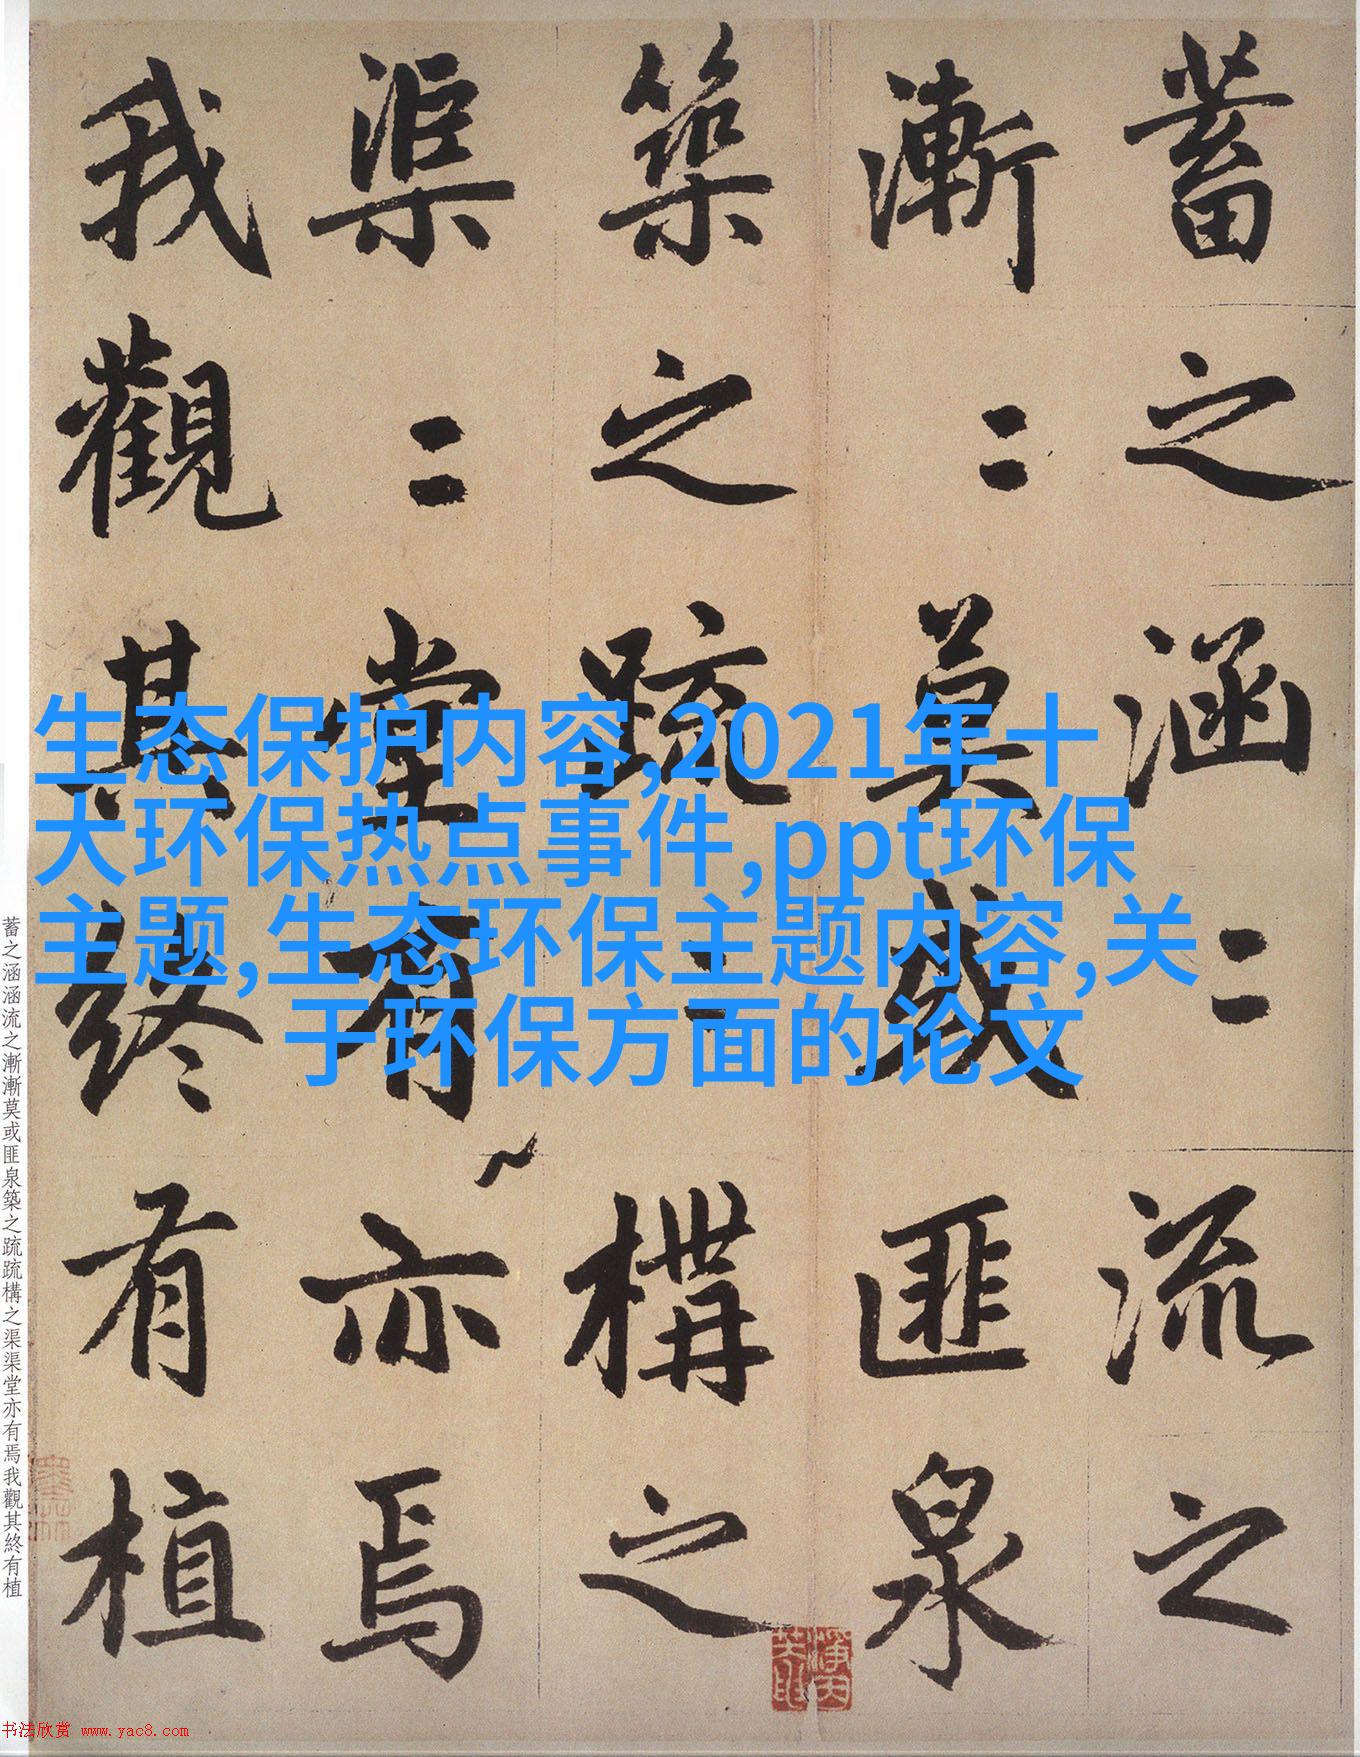 蓄之涵〻流之
漸〻莫或匪泉
築之疏〻構之
渠〻堂有亦焉
我觀其終有植
生态保护内容,2021年十
大环保热点事件,ppt环保
主题,生态环保主题内容,关
于环保方面的论文
蓄之涵涵流之漸漸莫或匪泉築之疏疏構之渠渠堂亦有焉我觀其終有植
书法欣赏 www.yac8.com